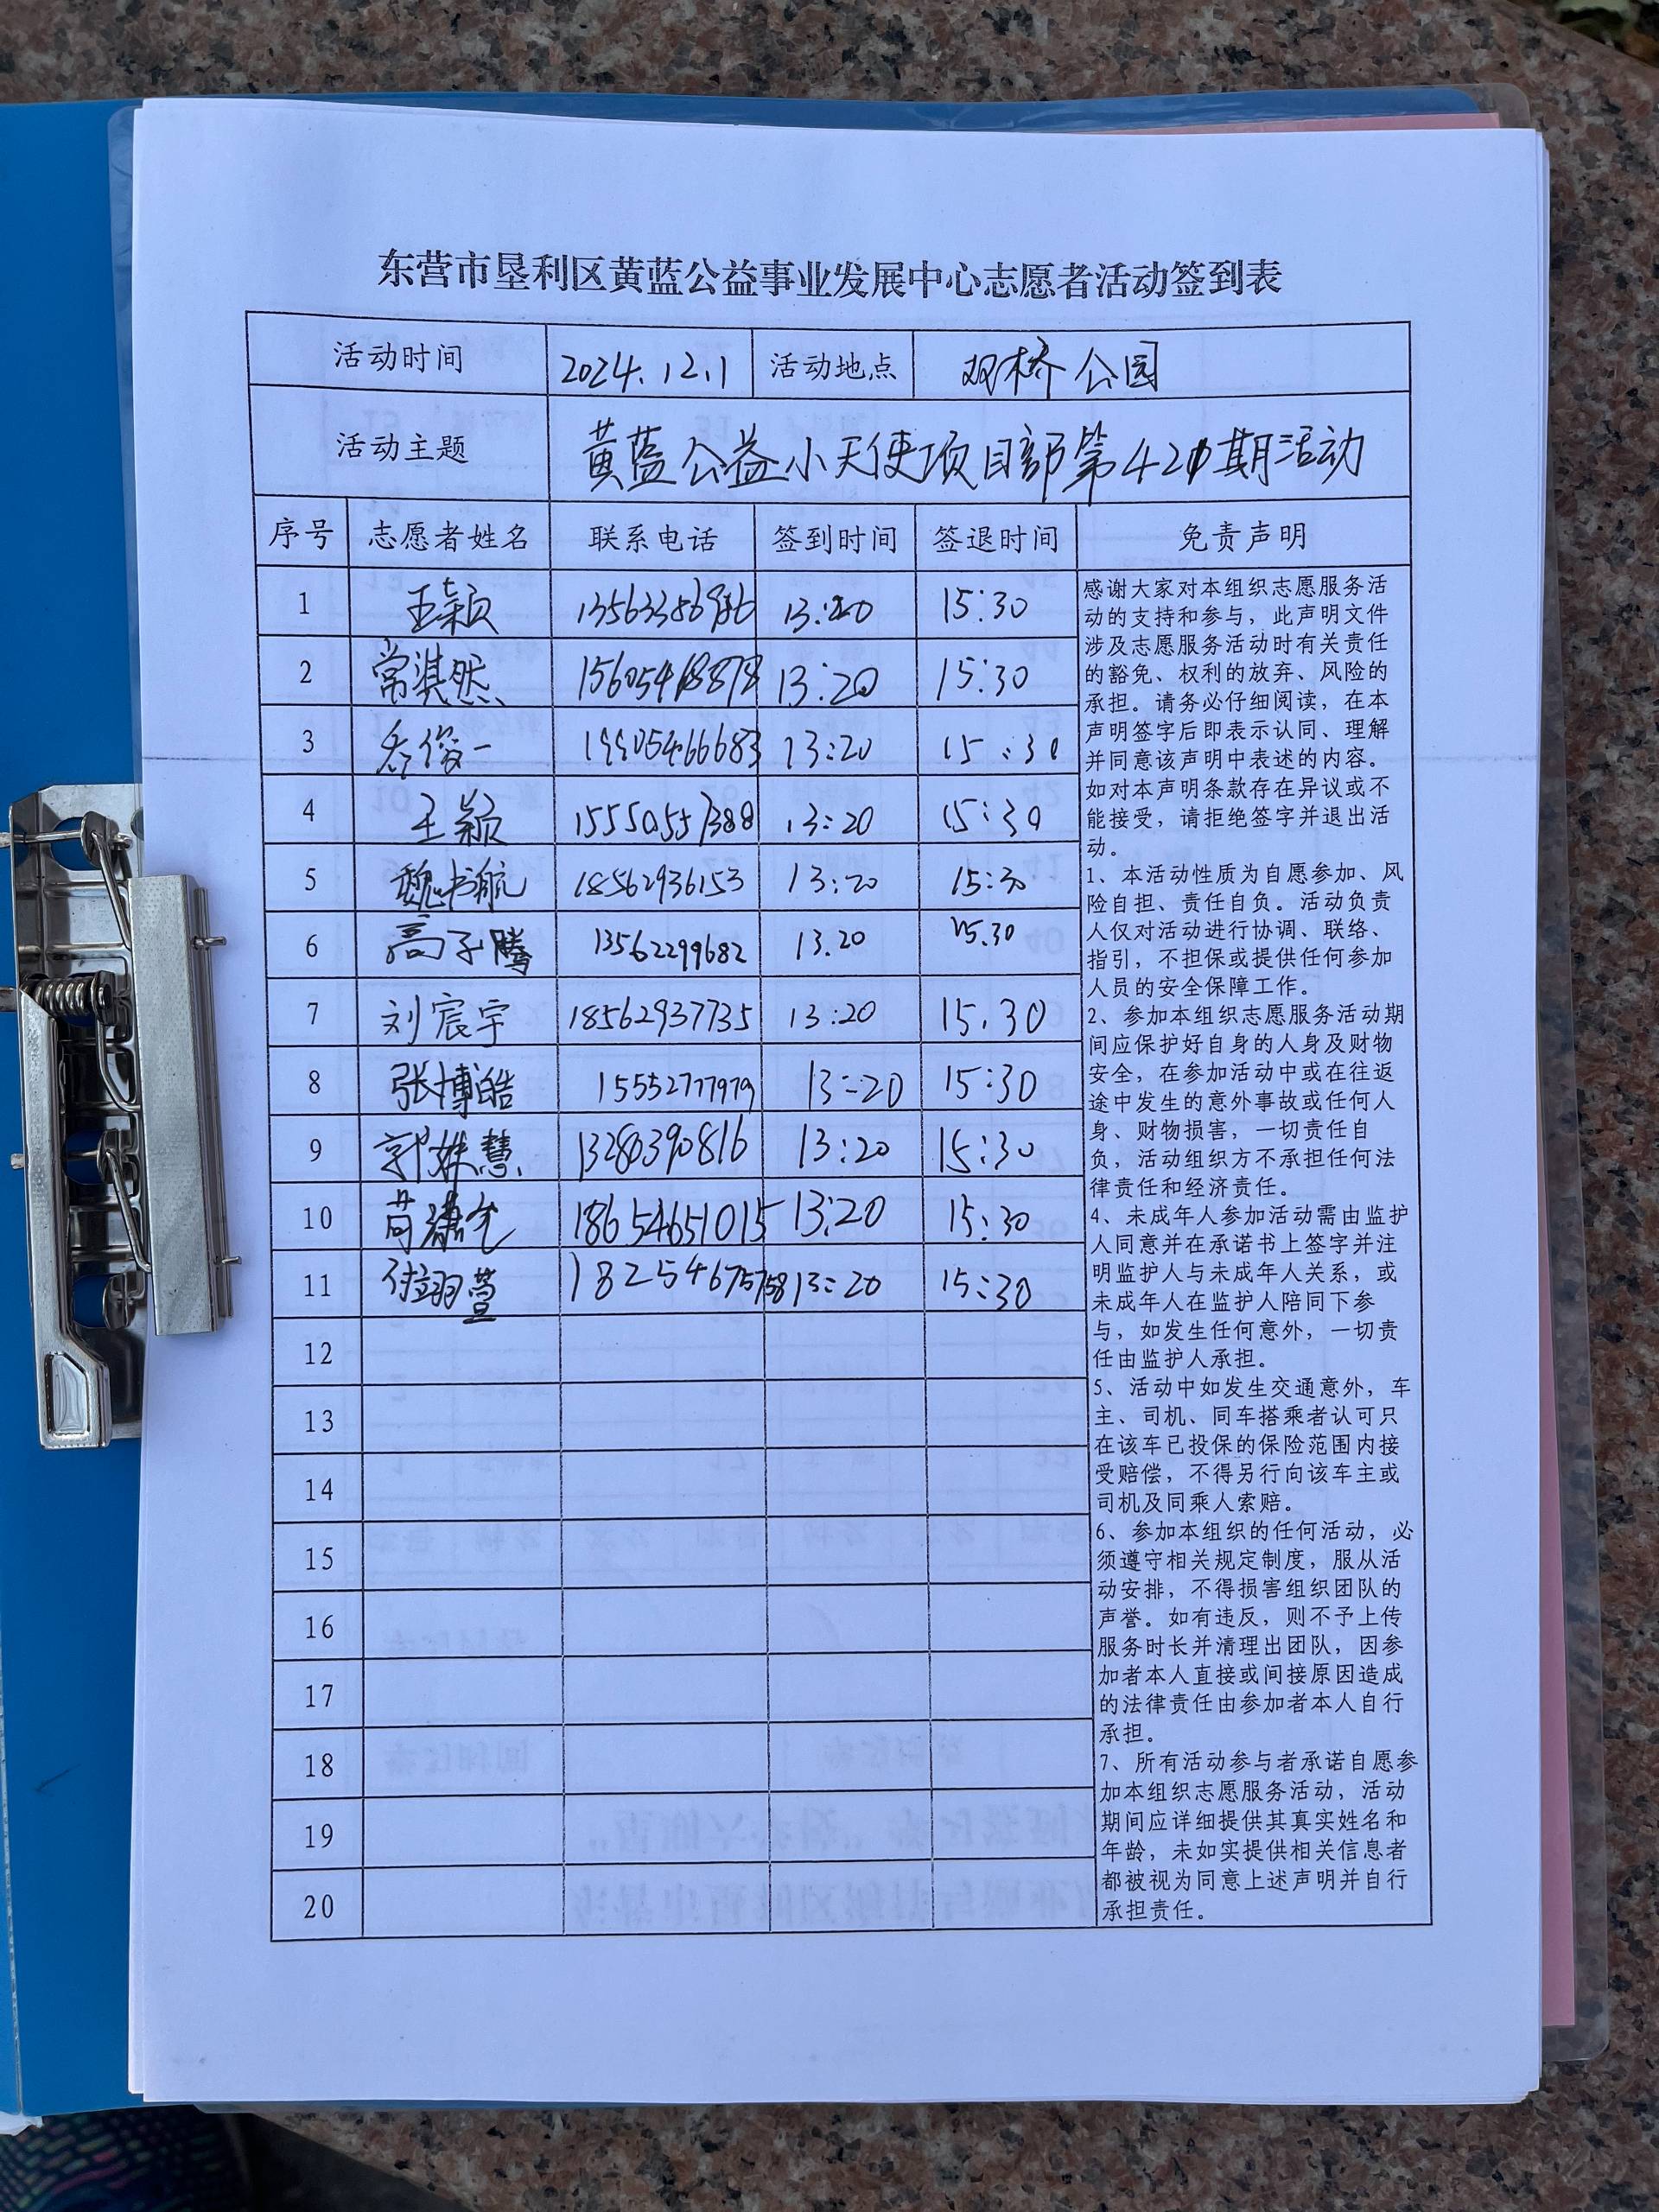 东营市垦利区黄蓝公益事业发展中心志愿者活动签到表
活动时间 2024.12.1 活动地点 双桥公园
活动主题 黄蓝公益小天使项目部第421期活动
序号 志愿者姓名 联系电话 签到时间 签退时间 免责声明
1 王颖 13:20 15:30
2 常淇然 13:20 15:30
3 乔俊一 19905466683 13:20 15:30
4 王颖 15550557388 13:20 15:30
5 魏书航 18562936153 13:20 15:30
6 高子腾 13562299682 13.20 15.30
7 刘宸宇 18562937735 13:20 15.30
8 张博皓 15552777979 13:20 15:30
9 郭姝慧 13280390816 13:20 15:30
10 18654651015 13:20 15:30
11 18254675758 13:20 15:30
12
13
14
15
16
17
18
19
20
感谢大家对本组织志愿服务活
动的支持和参与，此声明文件
涉及志愿服务活动时有关责任
的豁免、权利的放弃、风险的
承担。请务必仔细阅读，在本
声明签字后即表示认同、理解
并同意该声明中表述的内容。
如对本声明条款存在异议或不
能接受，请拒绝签字并退出活
动。
1、本活动性质为自愿参加、风
险自担、责任自负。活动负责
人仅对活动进行协调、联络、
指引，不担保或提供任何参加
人员的安全保障工作。
2、参加本组织志愿服务活动期
间应保护好自身的人身及财物
安全，在参加活动中或在往返
途中发生的意外事故或任何人
身、财物损害，一切责任自
负，活动组织方不承担任何法
律责任和经济责任。
4、未成年人参加活动需由监护
人同意并在承诺书上签字并注
明监护人与未成年人关系，或
未成年人在监护人陪同下参
与，如发生任何意外，一切责
任由监护人承担。
5、活动中如发生交通意外，车
主、司机、同车搭乘者认可只
在该车已投保的保险范围内接
受赔偿，不得另行向该车主或
司机及同乘人索赔。
6、参加本组织的任何活动，必
须遵守相关规定制度，服从活
动安排，不得损害组织团队的
声誉。如有违反，则不予上传
服务时长并清理出团队，因参
加者本人直接或间接原因造成
的法律责任由参加者本人自行
承担。
7、所有活动参与者承诺自愿参
加本组织志愿服务活动，活动
期间应详细提供其真实姓名和
年龄，未如实提供相关信息者
都被视为同意上述声明并自行
承担责任。